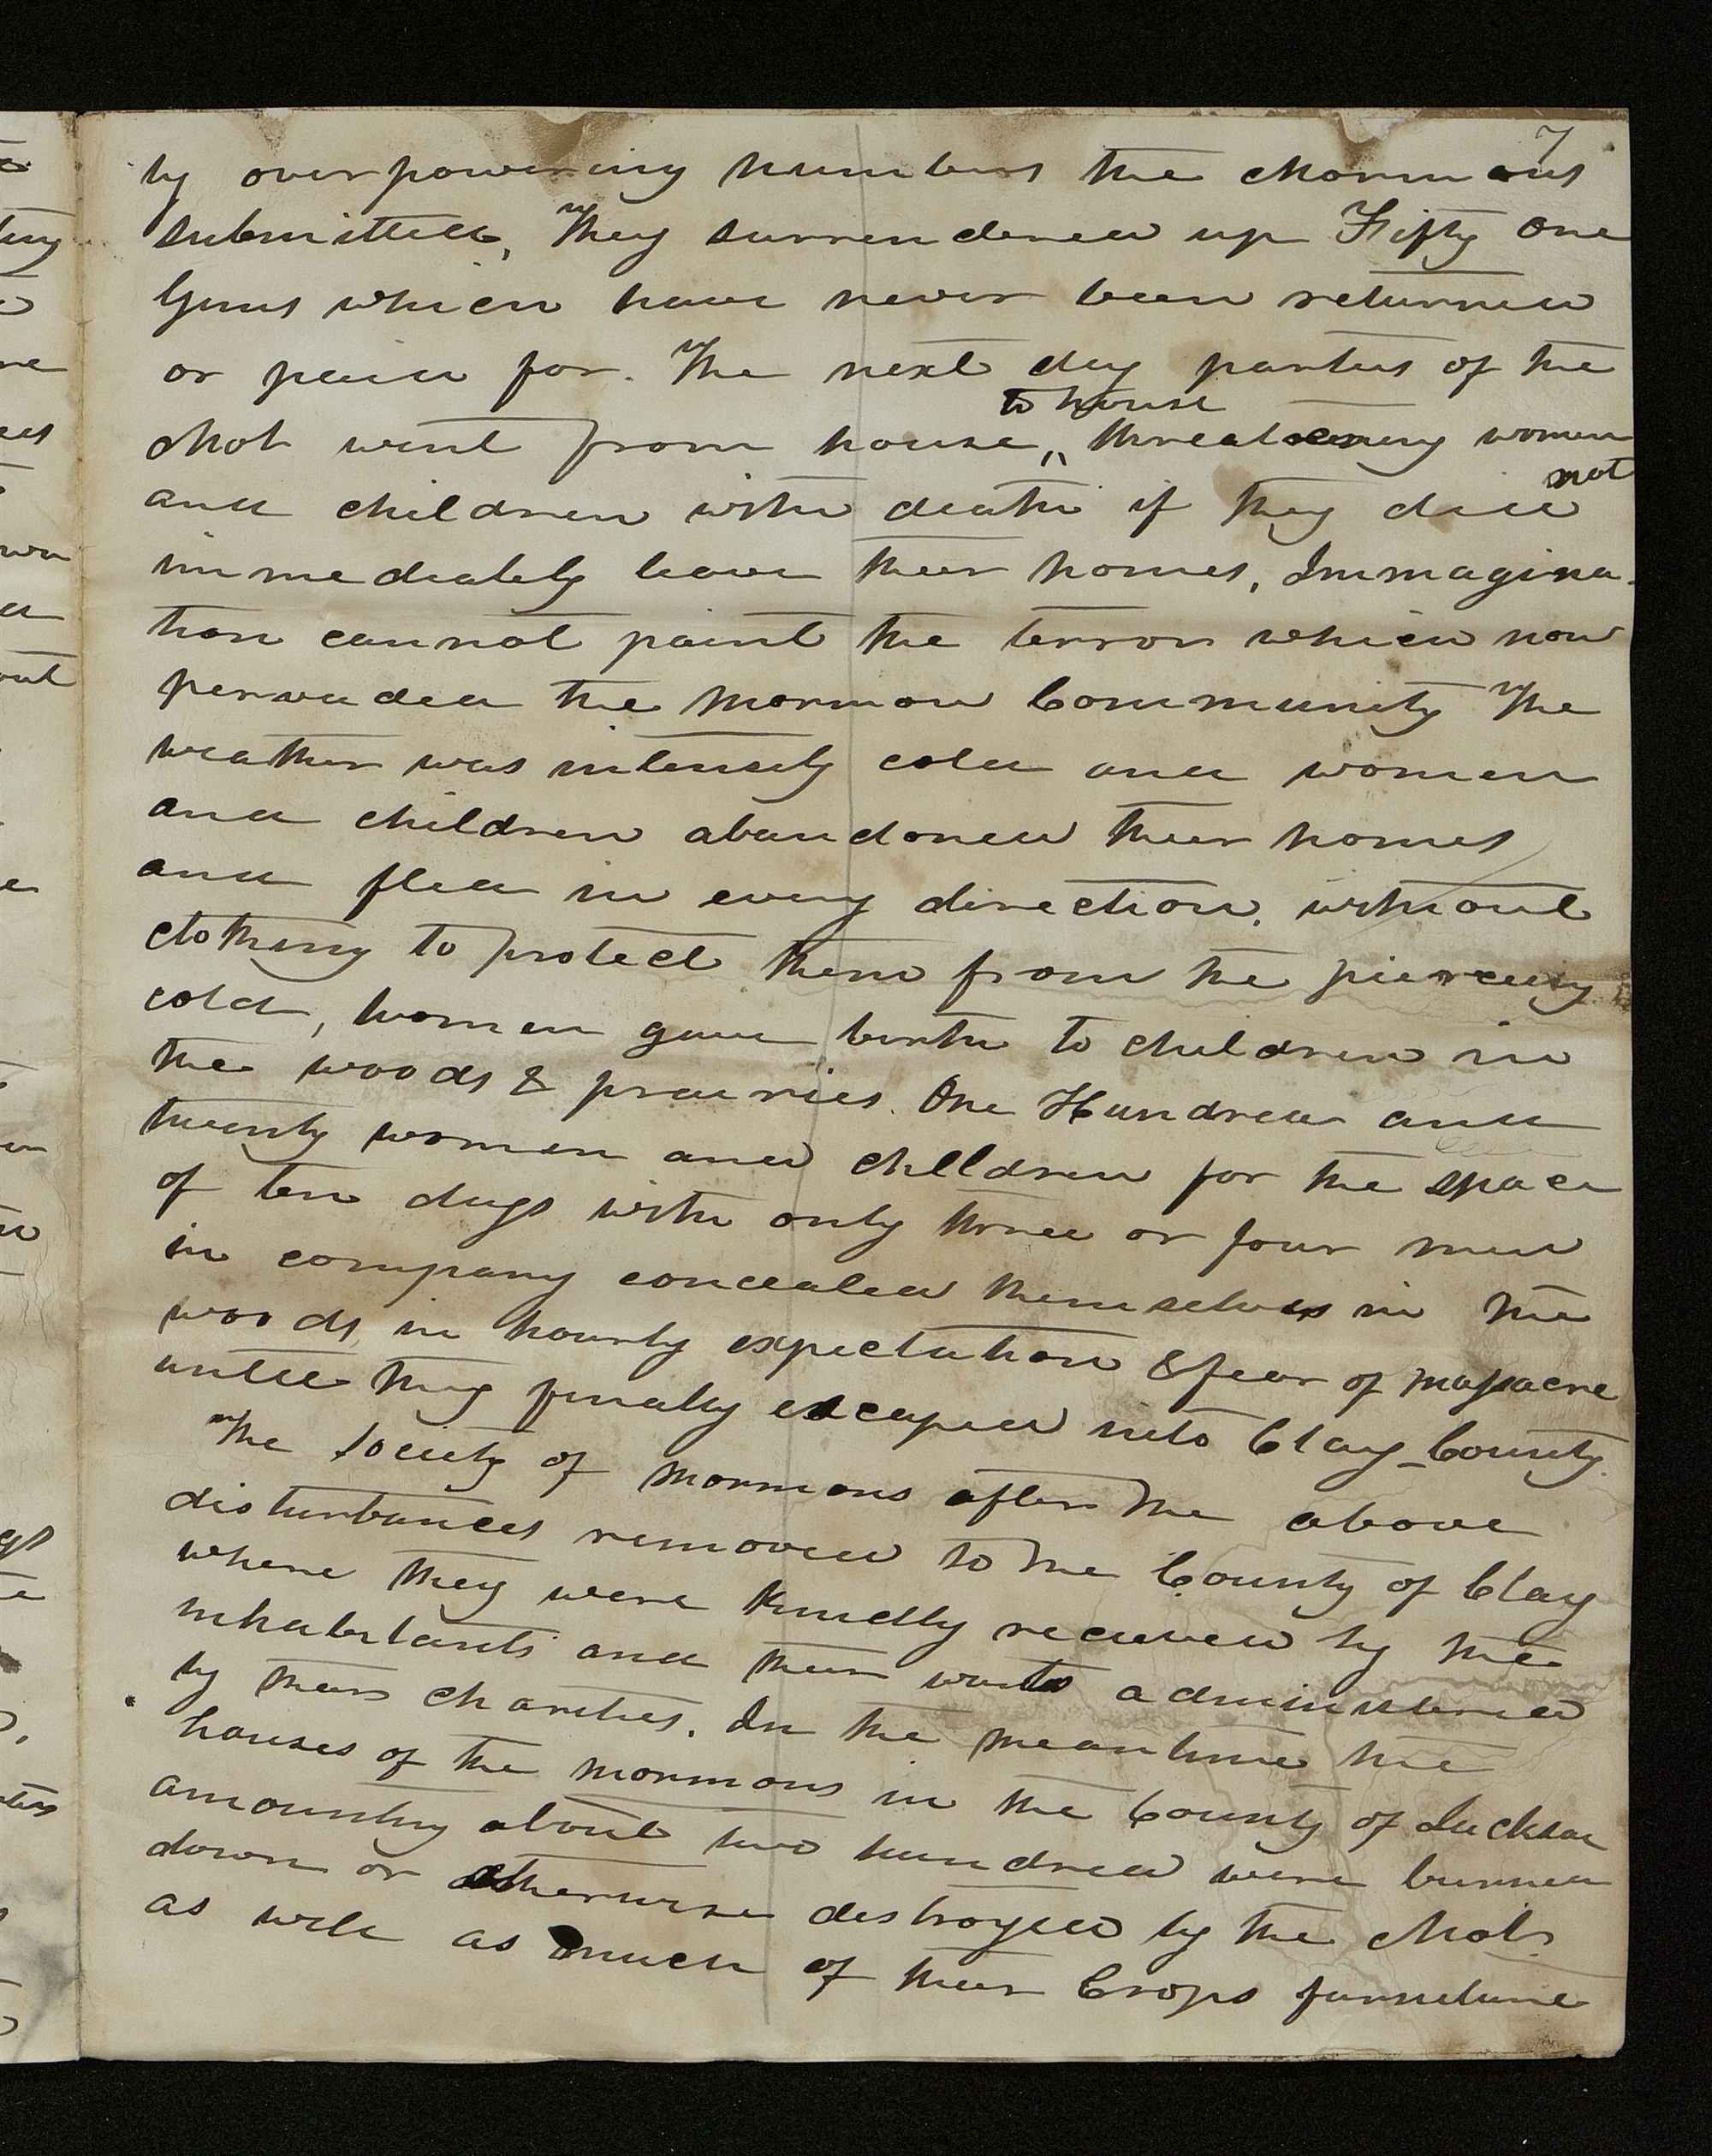 7
by overpowering numbers the Mormons
submitted, They surrendered up Fifty one
Guns which have never been returned
or paid for. The next day parties of the
to house
Mob went from house, threatening women
not
and children with death if they did
immediately leave their homes, Immagina-
tion cannot paint the terror which now
pervaded the Mormon Community The
weather was intensely cold and women
and children abandoned their homes
and fled in every direction, without
clothing to protect them from the piercing
cold, women gave birth to children in
the woods & prairies. One Hundred and
twenty women and children for the space
of ten days with only three or four men
in company concealed themselves in the
woods in hourly expectation & fear of massacre
untill they finally escaped into Clay County.
The Society of Mormons after the above
disturbances removed to the County of Clay
where they were kindly recieved by the
inhabitants and their wants administered
by their charities. In the meantime the
houses of the Mormons in the County of Jackson
amounting about two hundred were burned
down or otherwise destroyed by the Mob.
as well as much of their Crops furneture